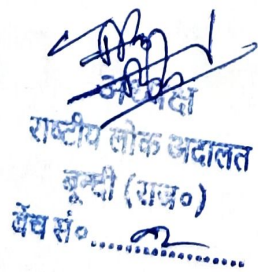 अध्यक्ष
राष्ट्रीय लोक अदालत
बून्दी (राज०)
बेंच सं०.................